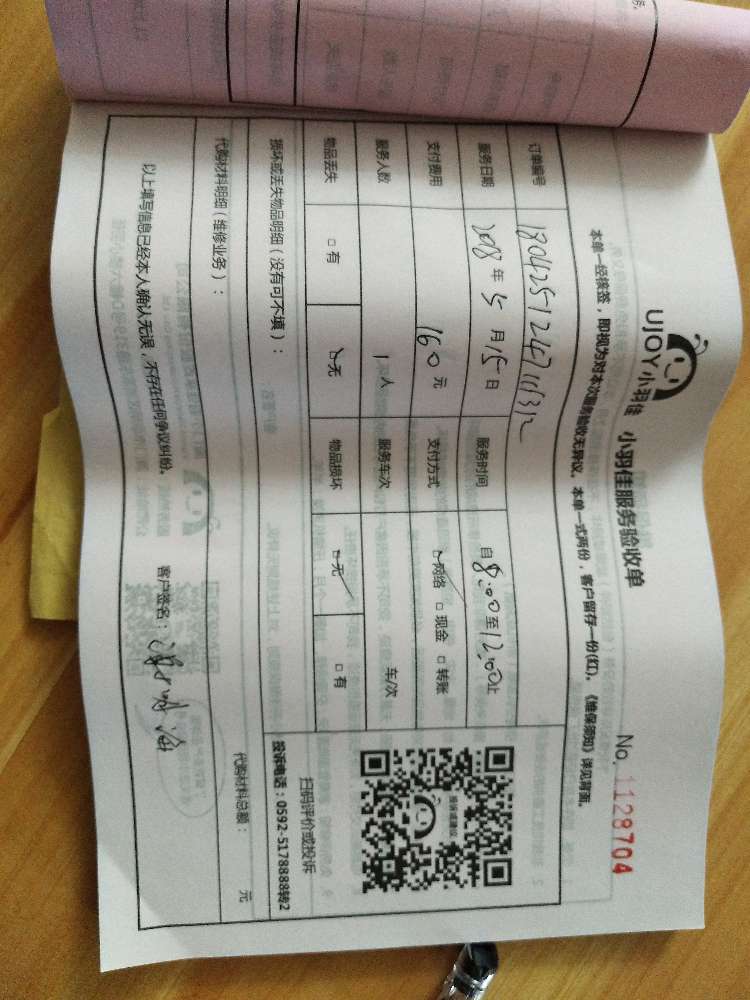 UJOY小羽佳 小羽佳服务验收单 No. 1128704
本单一经核签，即视为对本次服务验收无异议。本单一式两份，客户留存一份(红)。《维保须知》详见背面。
订单编号
服务日期 2018年5月15日 服务时间 自8:00至12:00止
支付费用 160元 支付方式 ☑网络 □现金 □转账
服务人数 1人 服务车次 车/次
物品丢失 □有 ☑无 物品损坏 ☑无 □有
投诉或建议
扫码评价或投诉
投诉电话：0592-5178888转2
损坏或丢失物品明细（没有可不填）：
代购材料明细（维修业务）： 代购材料总额： 元
以上填写信息已经本人确认无误，不存在任何争议纠纷。 客户签名：